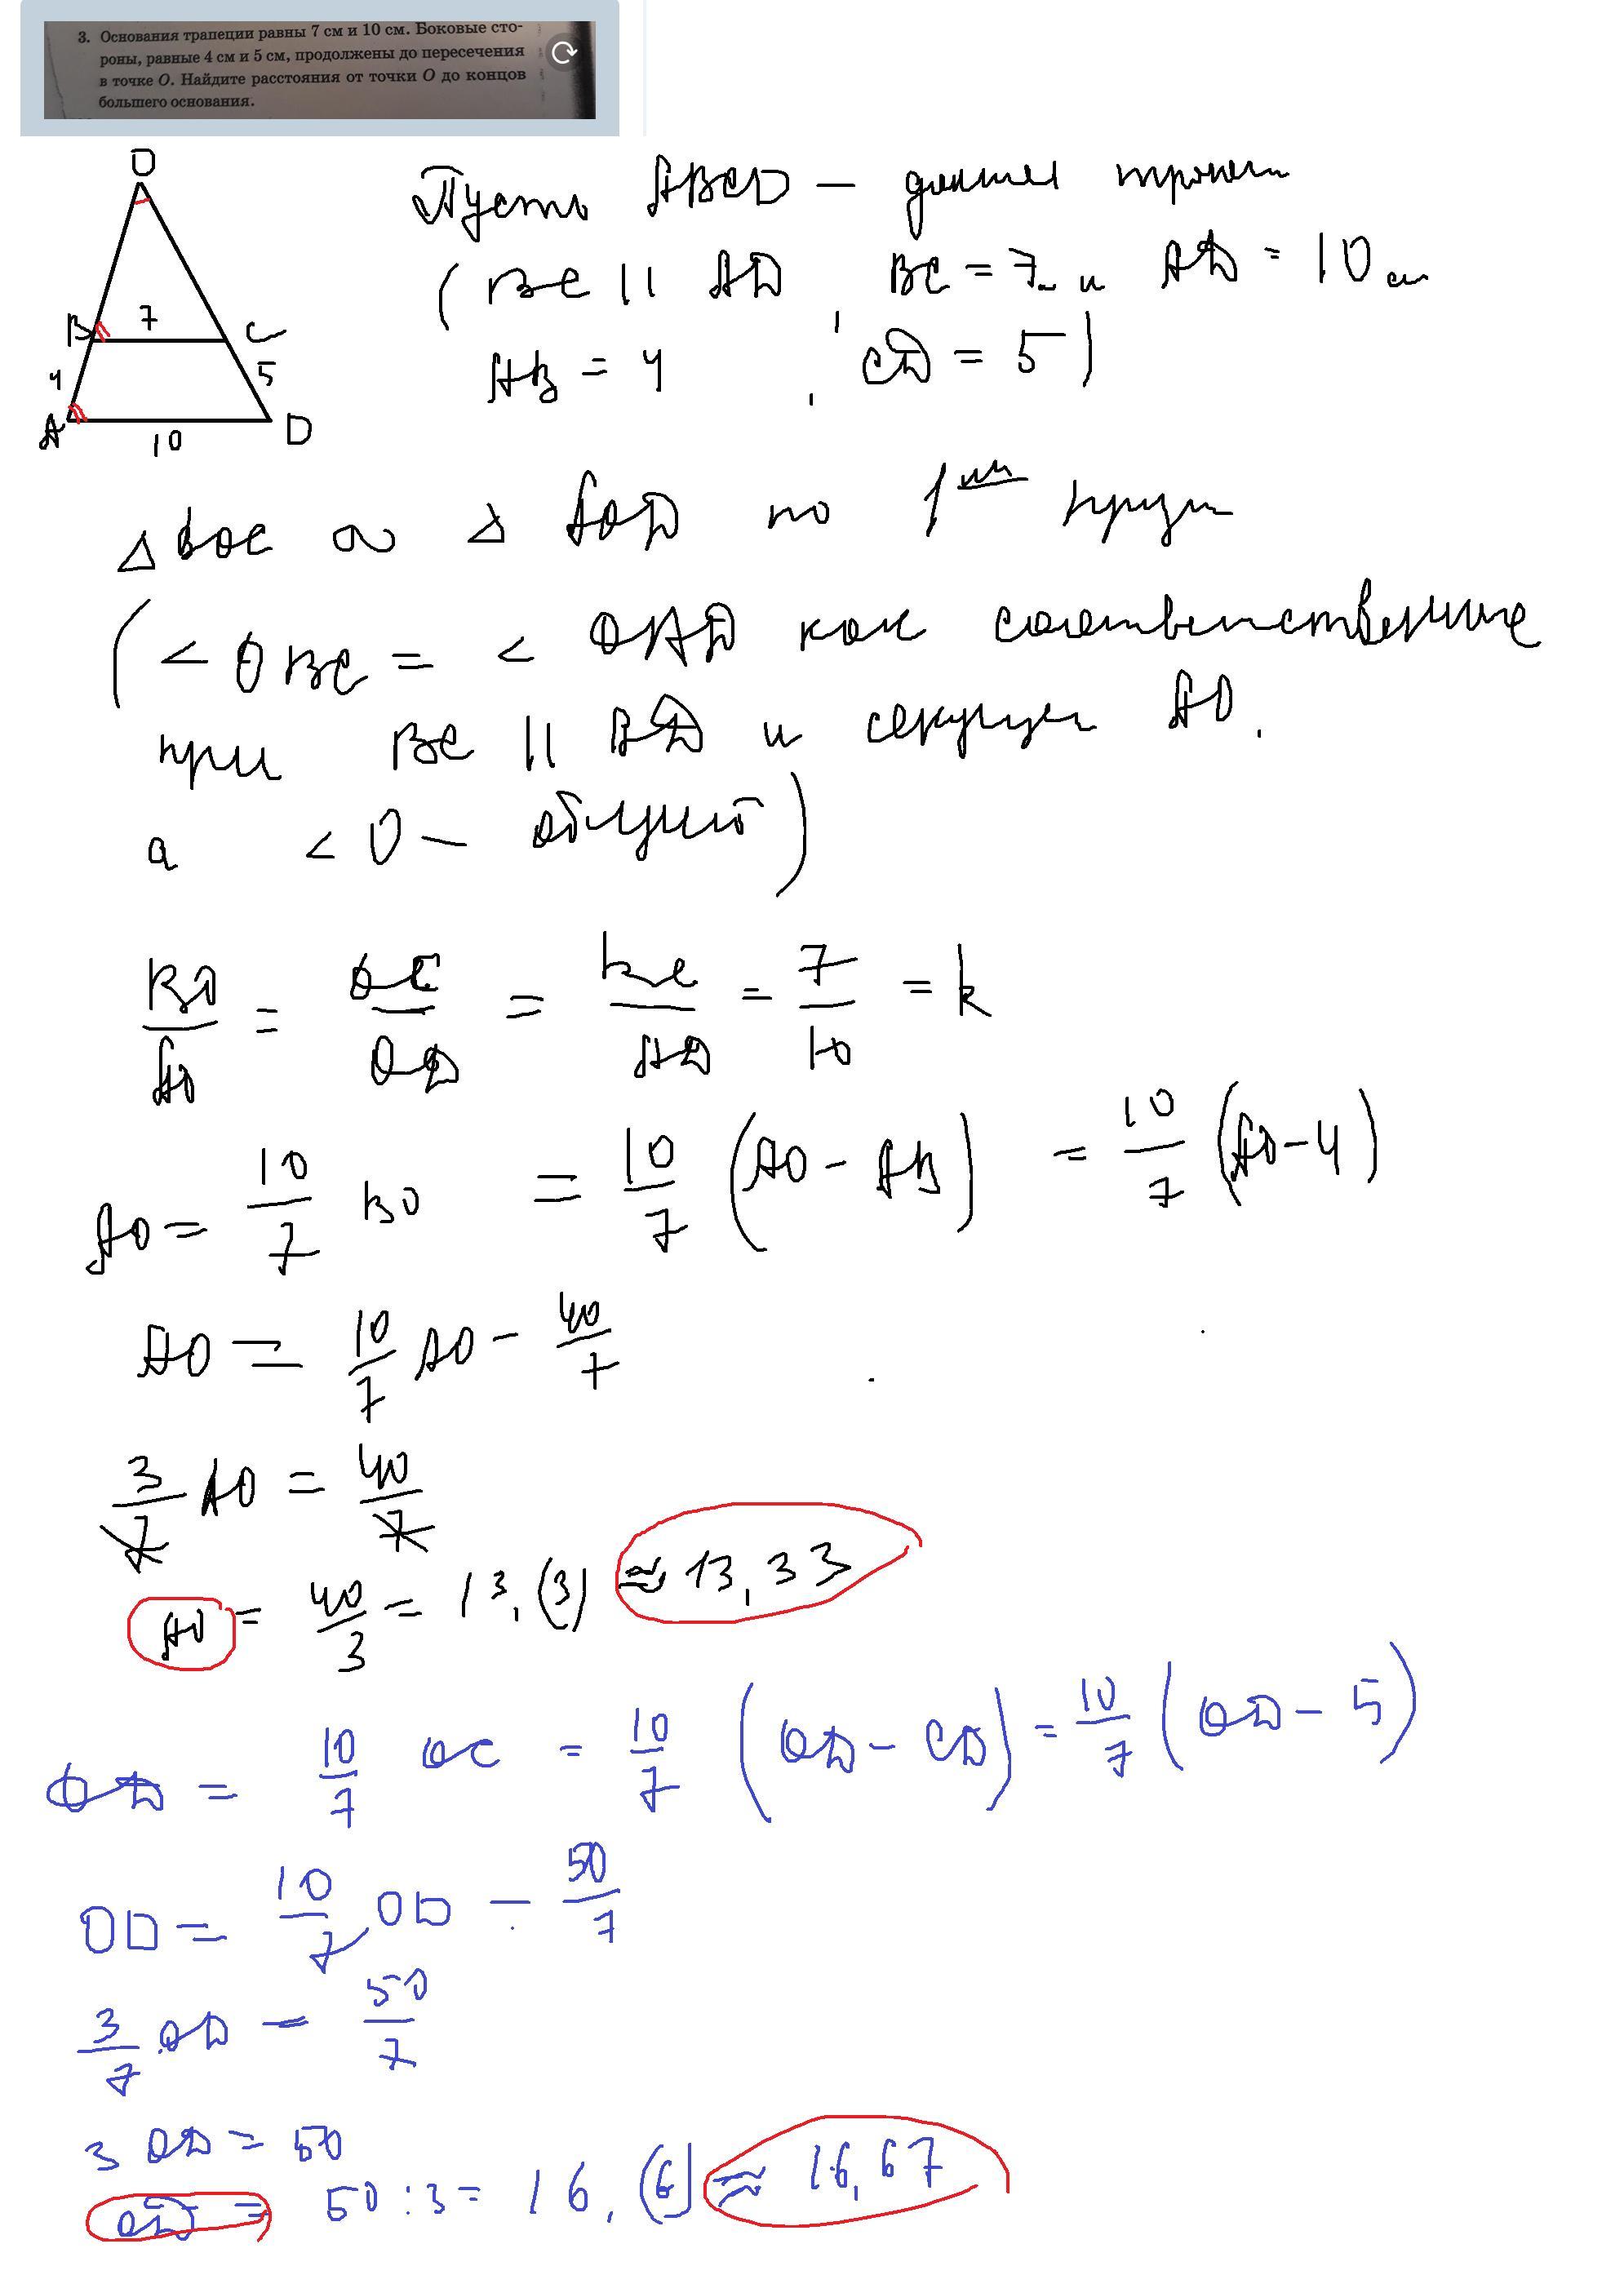 3. Основания трапеции равны 7 см и 10 см. Боковые сто-
роны, равные 4 см и 5 см, продолжены до пересечения
в точке O. Найдите расстояния от точки O до концов
большего основания.
O
B 7 C
4 5
A 10 D
Пусть ABCD –
(BC || AD, BC = 7 см и AD = 10 см
AB = 4, CD = 5)
Δ BOC ∞ Δ AOD по 1
(< OBC = < OAD как соответственные
при BC || BD и секущей AO.
а < O – общий)
BO/AO = OC/OD = BC/AD = 7/10 = k
AO = 10/7 BO = 10/7 (AO - AB) = 10/7 (AO - 4)
AO = 10/7 AO - 40/7
3/7 AO = 40/7
AO = 40/3 = 13,(3) ≈ 13,33
OD = 10/7 OC = 10/7 (OD - CD) = 10/7 (OD - 5)
OD = 10/7 OD - 50/7
3/7 OD = 50/7
3 OD = 50
OD = 50 : 3 = 16,(6) ≈ 16,67